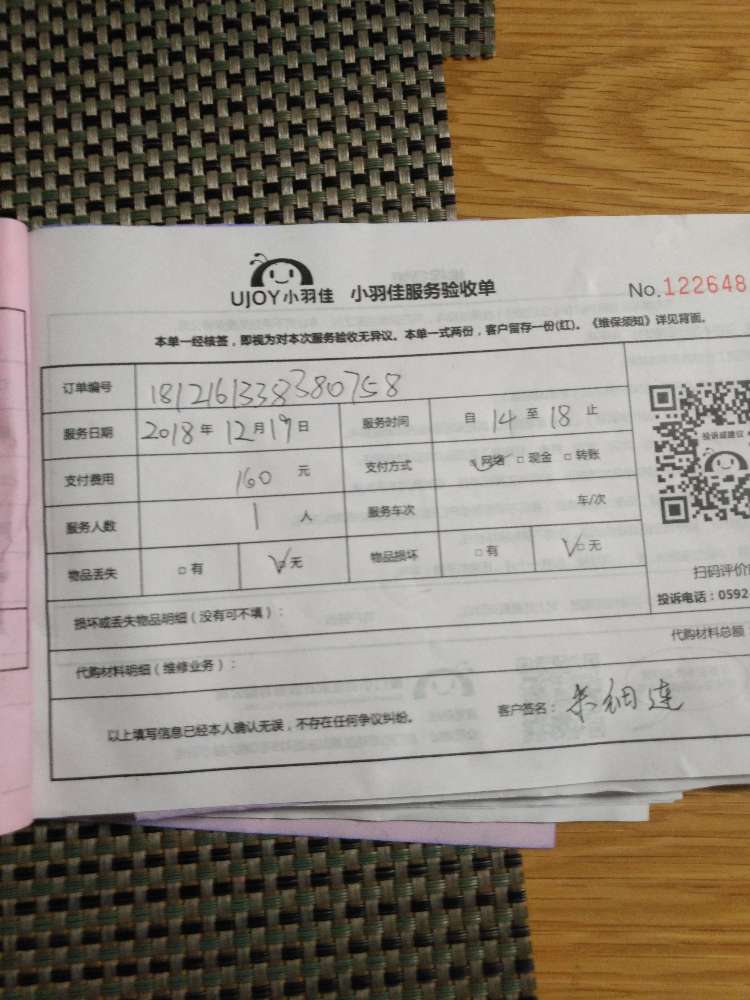 UJOY小羽佳 小羽佳服务验收单 No.122648
本单一经核签，即视为对本次服务验收无异议。本单一式两份，客户留存一份(红)。《维保须知》详见背面。
订单编号 181216133838380758
服务日期 2018年12月19日 服务时间 自14至18止
支付费用 160元 支付方式 ☑网络 □现金 □转账
服务人数 1人 服务车次 车/次
物品丢失 □有 ☑无 物品损坏 □有 ☑无
投诉或建议
扫码评价
投诉电话：0592
损坏或丢失物品明细（没有可不填）：
代购材料明细（维修业务）： 代购材料总额：
以上填写信息已经本人确认无误，不存在任何争议纠纷。 客户签名：朱细连